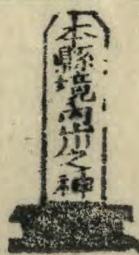 本縣境內山川之神